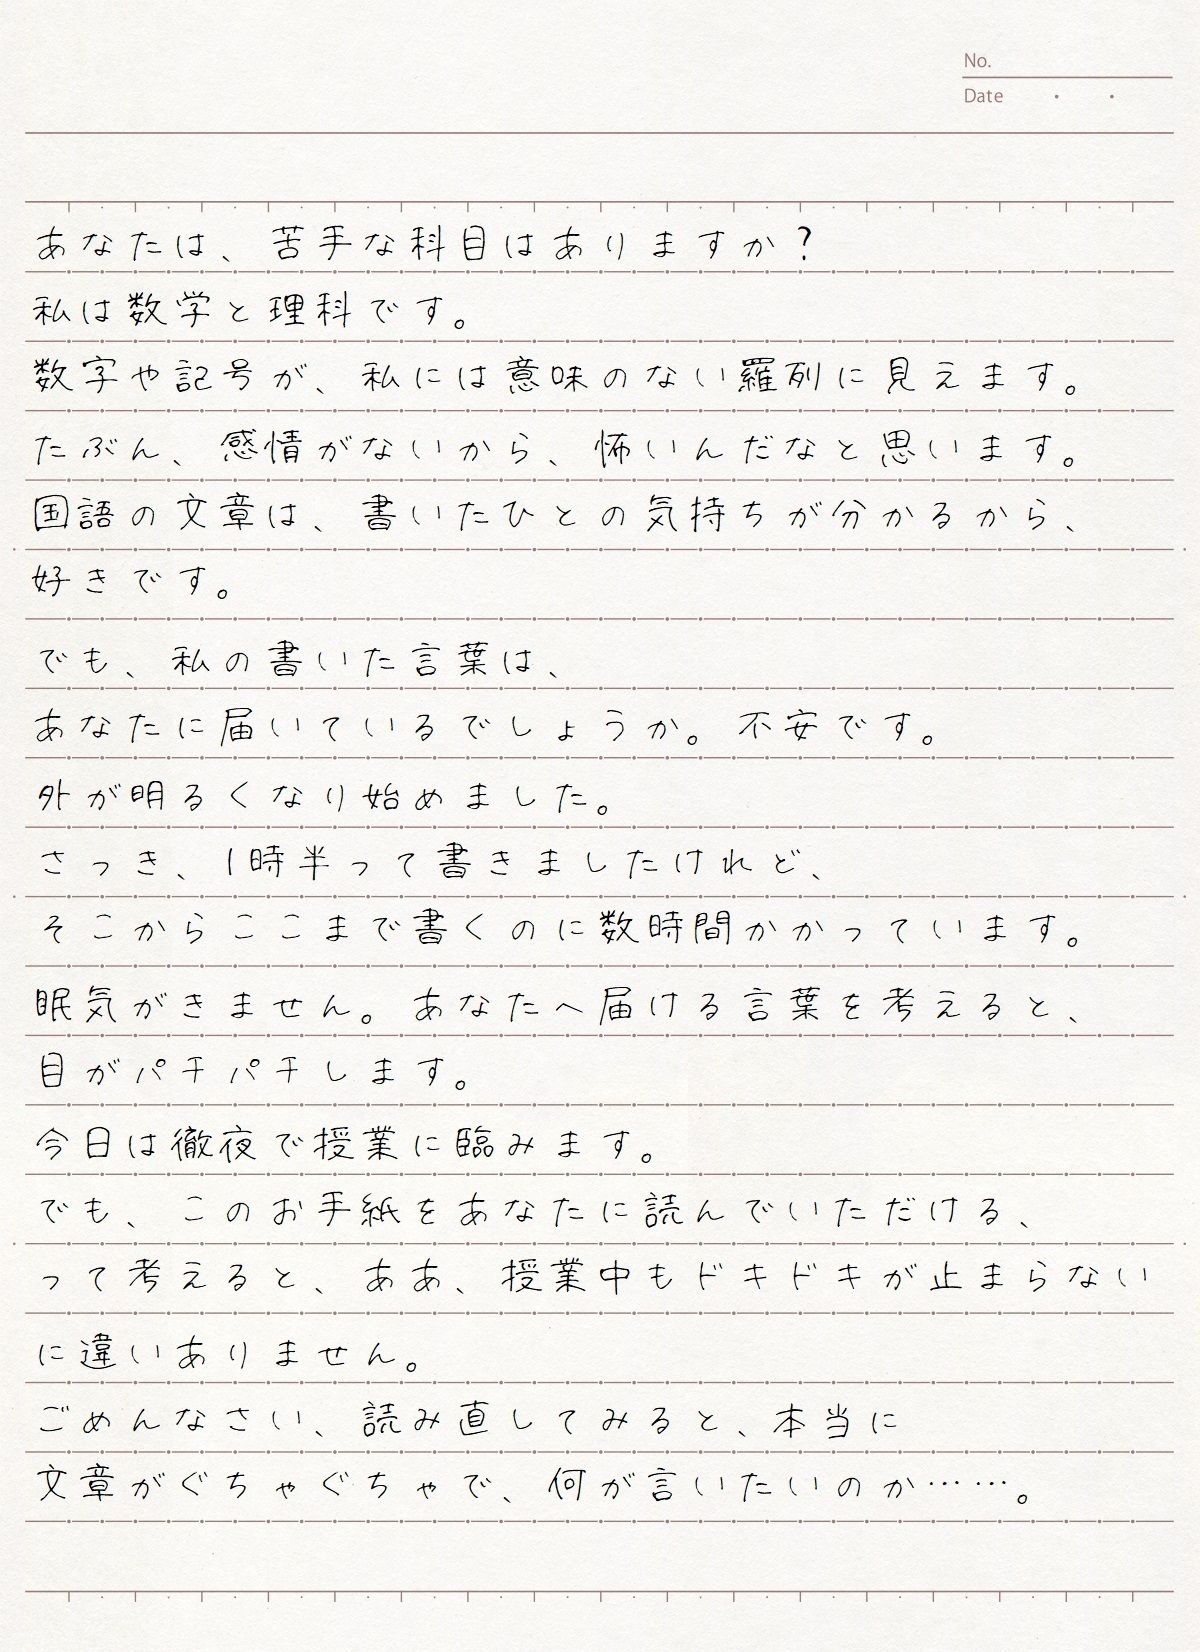 No.
Date ・ ・
あなたは、苦手な科目はありますか？
私は数学と理科です。
数字や記号が、私には意味のない羅列に見えます。
たぶん、感情がないから、怖いんだなと思います。
国語の文章は、書いたひとの気持ちが分かるから、
好きです。
でも、私の書いた言葉は、
あなたに届いているでしょうか。不安です。
外が明るくなり始めました。
さっき、1時半って書きましたけれど、
そこからここまで書くのに数時間かかっています。
眠気がきません。あなたへ届ける言葉を考えると、
目がパチパチします。
今日は徹夜で授業に臨みます。
でも、このお手紙をあなたに読んでいただける、
って考えると、ああ、授業中もドキドキが止まらない
に違いありません。
ごめんなさい、読み直してみると、本当に
文章がぐちゃぐちゃで、何が言いたいのか……。